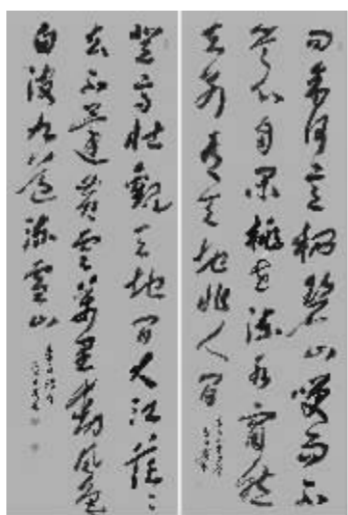 问余何意栖碧山笑而不
答心自闲桃花流水窅然
去别有天地非人间
登高壮觀天地间大江茫々
去不還黄雲萬里動風色
白波九道流雪山